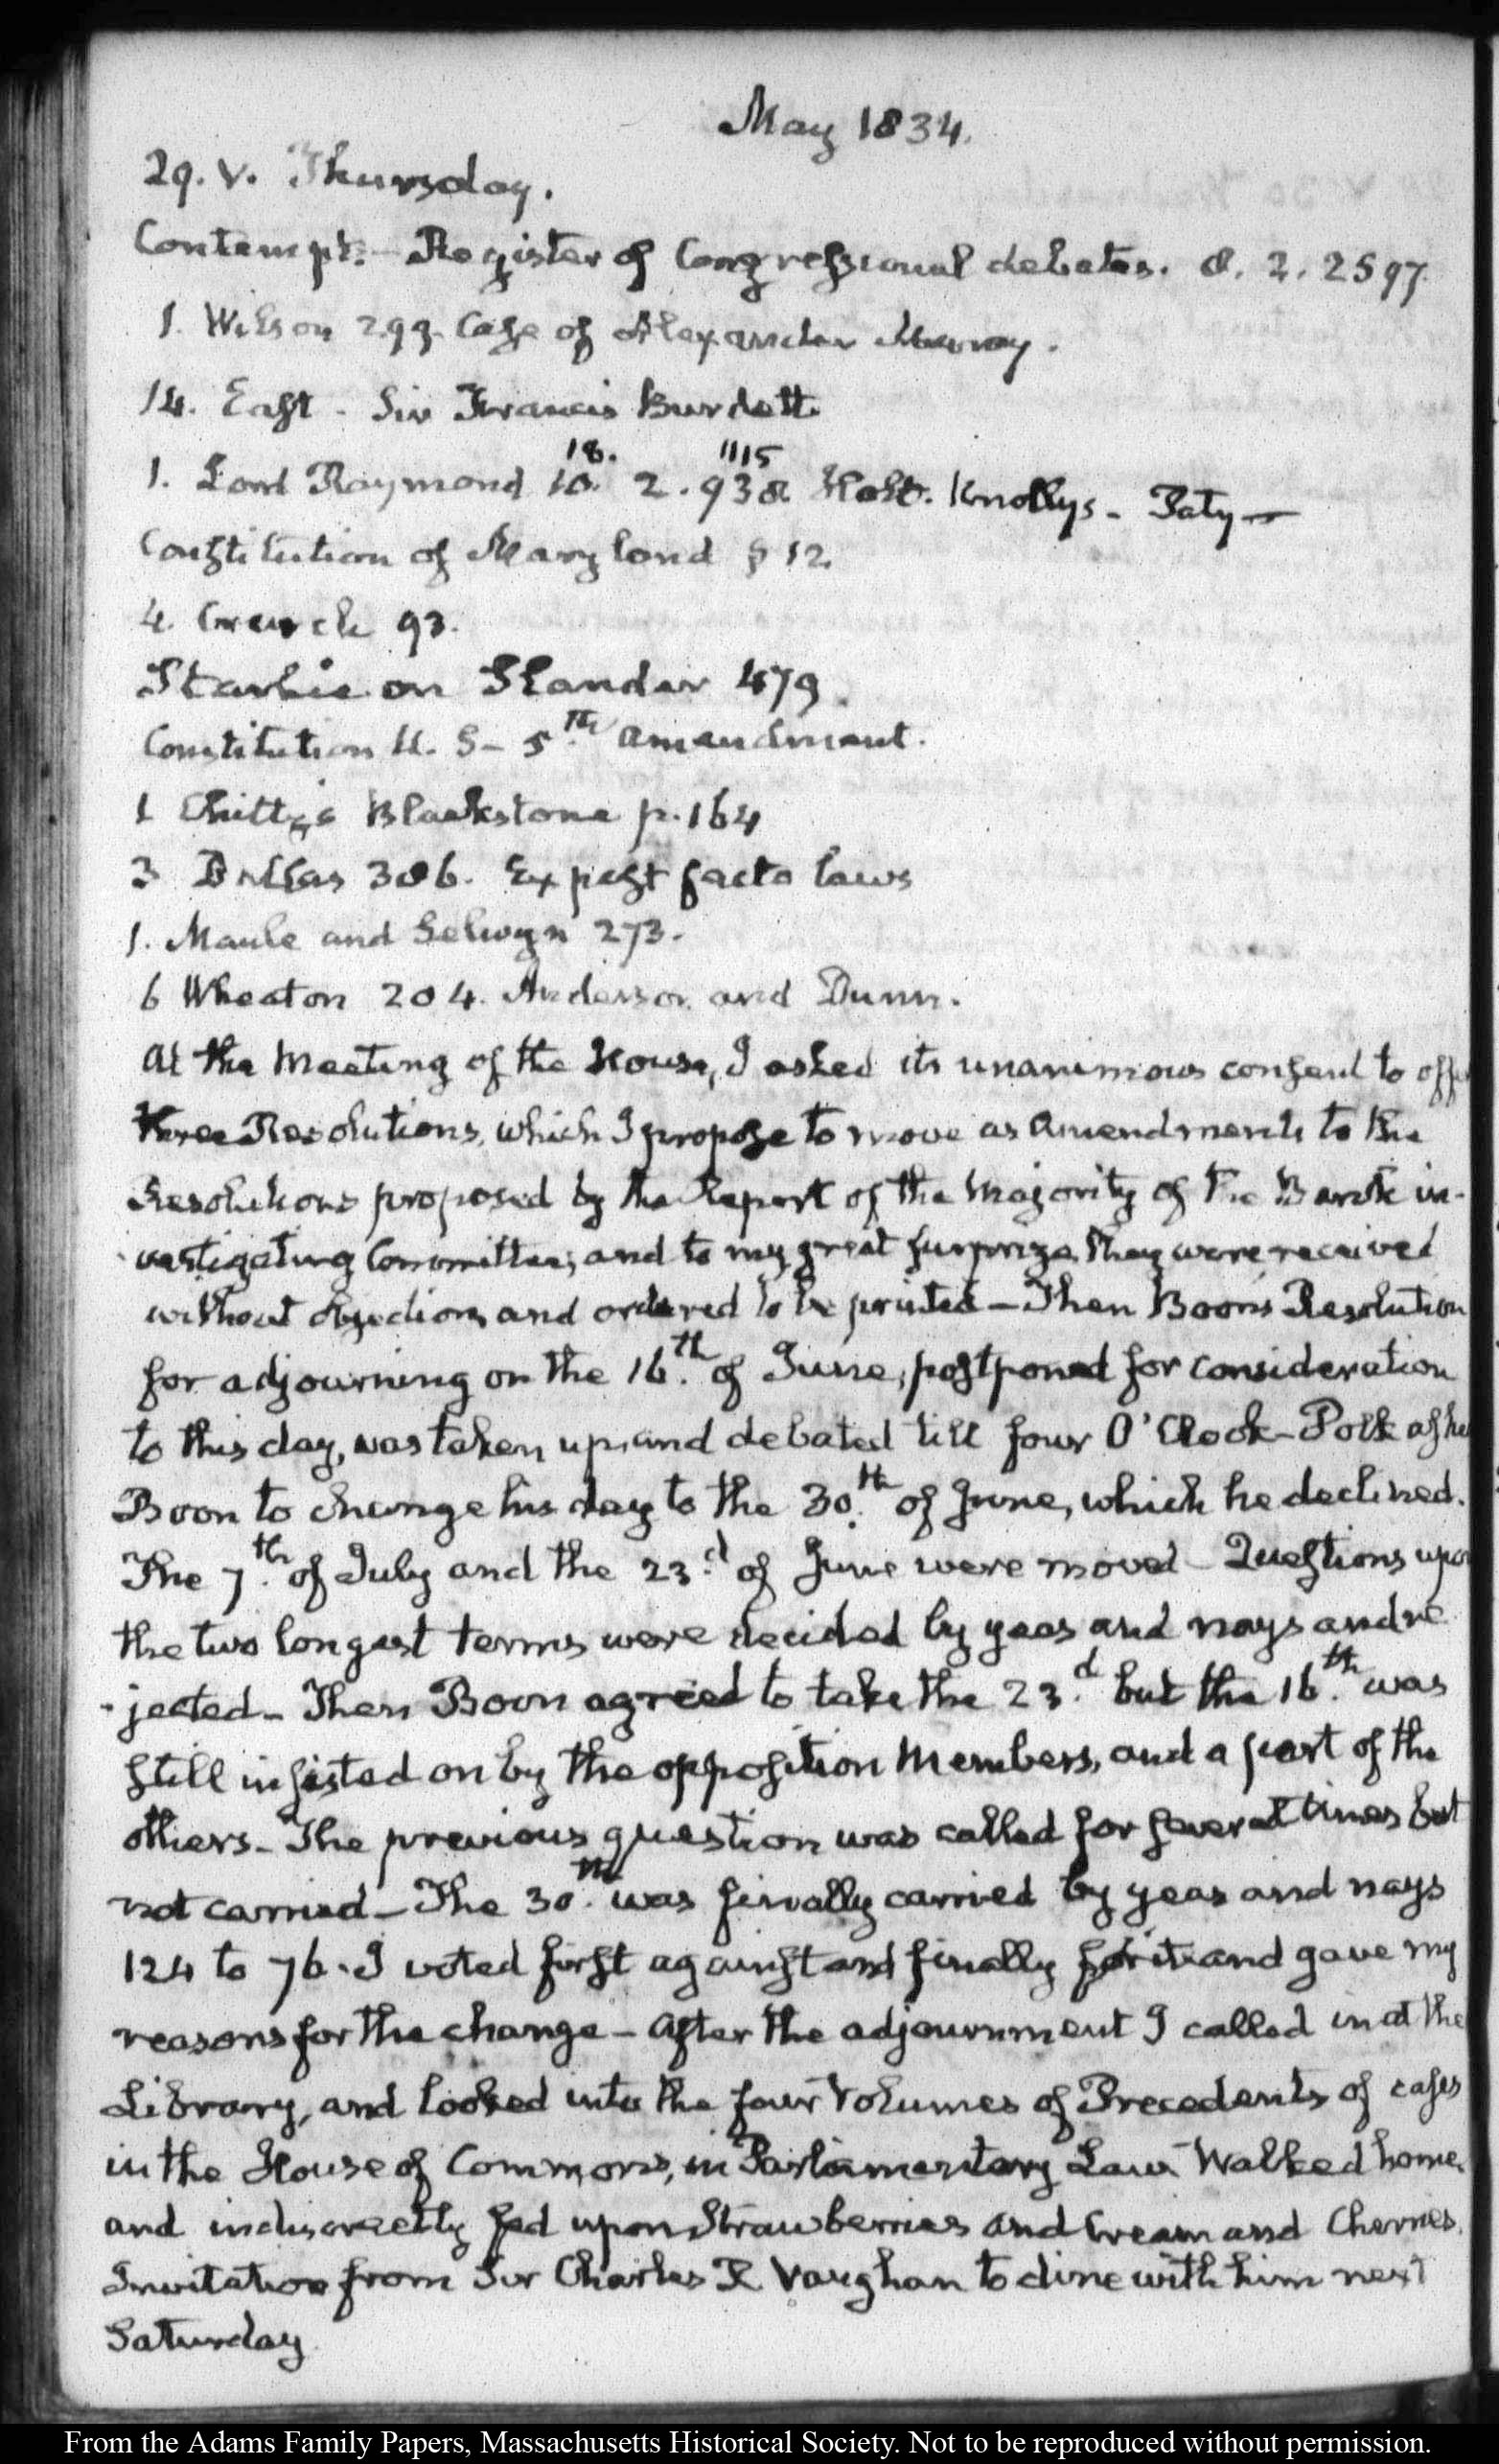 May 1834.
29. V. Thursday.
Contempt.— Register of Congressional debates. 8. 2. 2597.
1. Wilson 299. Case of Alexander Murray.
14. East - Sir Francis Burdett.
18. 1115
1. Lord Raymond 10. 2. 938. Holt. Knollys - Paty—
Constitution of Maryland § 12.
4. Cranch 93.
Starkie on Slander 479.
Constitution U. S— 5th. amendment.
1 Chitty's Blackstone p. 164
3 Dallas 386. Ex post facto laws
1. Maule and Selwyn 273.
6 Wheaton 204. Anderson and Dunn.
At the Meeting of the House, I asked its unanimous consent to offer
three Resolutions, which I propose to move as Amendments to the
Resolutions proposed by the Report of the Majority of the Bank in-
vestigating Committee; and to my great surprize they were received
without objection, and ordered to be printed— Then Boon's Resolution
for adjourning on the 16th. of June, postponed for consideration
to this day, was taken up, and debated till four O'Clock— Polk asked
Boon to change his day to the 30th. of June, which he declined.
The 7th. of July and the 23d. of June were moved— Questions upon
the two longest terms were decided by yeas and nays and re
-jected— Then Boon agreed to take the 23d. but the 16th. was
still insisted on by the opposition Members, and a part of the
others— The previous question was called for several times but
not carried— The 30th. was finally carried by yeas and nays
124 to 76. I voted first against and finally for it and gave my
reasons for the change— After the adjournment I called in at the
Library, and looked into the four Volumes of Precedents of cases
in the House of Commons, in Parliamentary Law— Walked home,
and indiscreetly fed upon Strawberries and Cream and Cherries.
Invitation from Sir Charles R Vaughan to dine with him next
Saturday
From the Adams Family Papers, Massachusetts Historical Society. Not to be reproduced without permission.